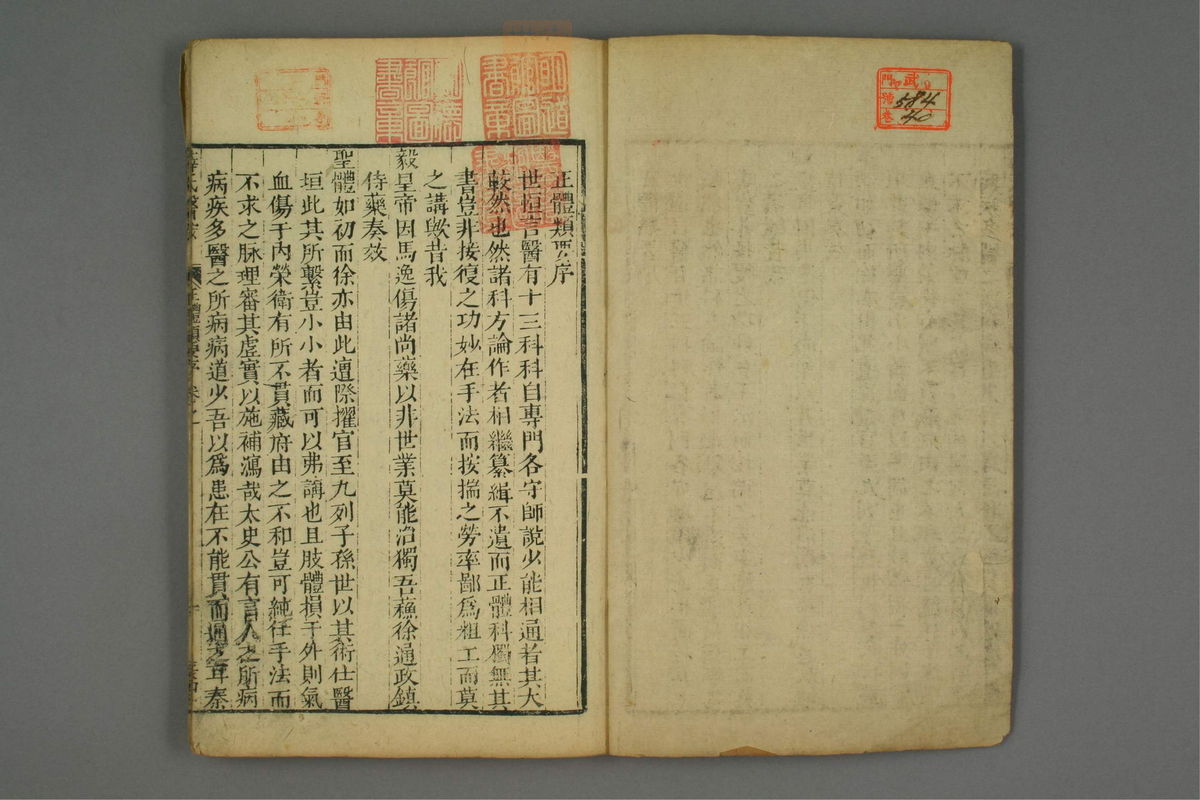 武
門
號
卷
584
40
正體類要序
世恒言醫有十三科科自專門各守師說少能相通者其大
較然也然諸科方論作者相繼纂緝不遺而正體科獨無其
書豈非接復之功妙在手法而按揣之勞率鄙爲粗工而莫
之講歟昔我
毅皇帝因馬逸傷諸尚藥以非世業莫能治獨吾蘓徐通政鎮
侍藥奏效
聖體如初而徐亦由此遭際擢官至九列子孫世以其術仕醫
垣此其所繫豈小小者而可以弗講也且肢體損于外則氣
血傷于內榮衛有所不貫藏府由之不和豈可純任手法而
不求之脉理審其虛實以施補瀉哉太史公有言人之所病
病疾多醫之所病病道少吾以爲患在不能貫而通之耳秦
薛氏醫案
正體類要序
書章
圖
書章